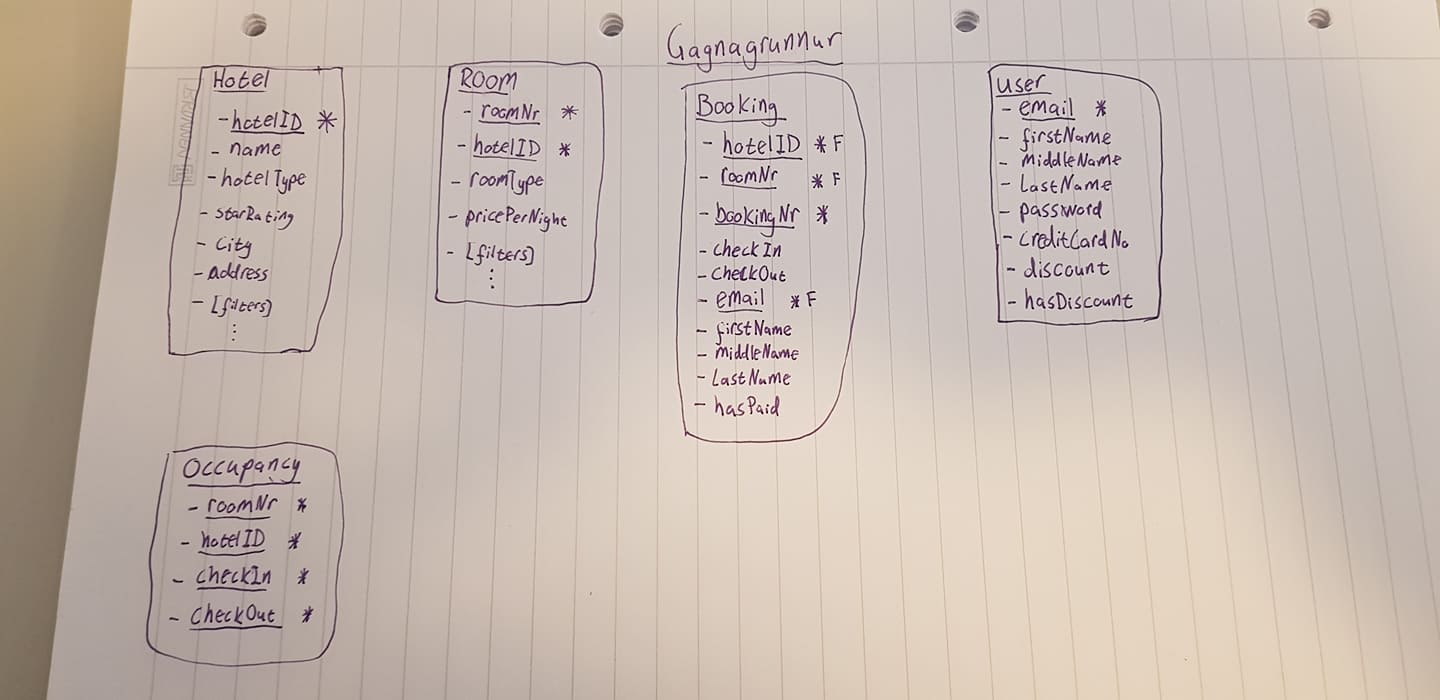 Gagnagrunnur
Hotel
- hotelID *
- name
- hotelType
- starRating
- City
- Address
- [filters]
⋮
ROOM
- roomNr *
- hotelID *
- roomType
- pricePerNight
- [filters]
⋮
Booking
- hotelID * F
- roomNr * F
- bookingNr *
- checkIn
- CheckOut
- email * F
- firstName
- middleName
- LastName
- hasPaid
user
- email *
- firstName
- middleName
- LastName
- password
- creditCardNo
- discount
- hasDiscount
Occupancy
- roomNr *
- hotelID *
- checkIn *
- CheckOut *